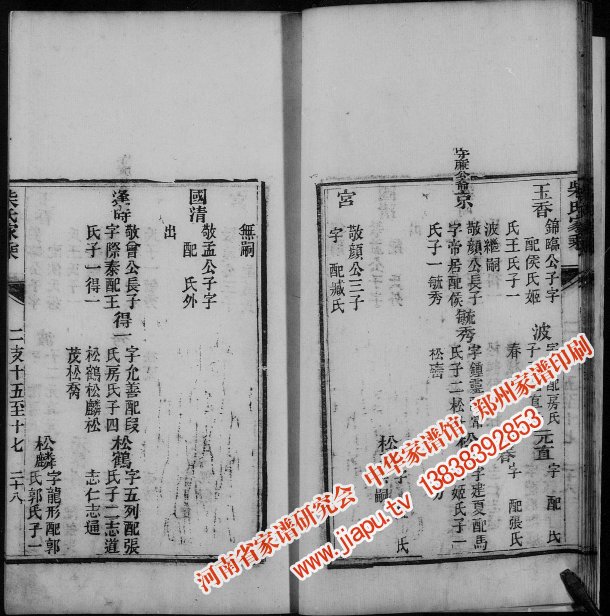 柴氏家乘
玉香
錦臨公子字
配侯氏姬
氏王氏子一
波
波繼嗣
春
字 配房氏
元直
字 配氏
字 配張氏
京
敬顏公長子
字帝居配侯
氏子一毓秀
毓秀
字鍾靈
氏子二松
松
字建夏配馬
姬氏子一
宮
敬顏公三子
字 配臧氏
無嗣
國清
敬孟公子字
配 氏外
出
逢時
敬曾公長子
字際泰配王
氏子一得一
得一
字允善配段
氏房氏子四
松鶴松麟松
茂松喬
松鶴
字五列配張
氏子二志道
志仁志通
松麟
字龍形配郭
氏郭氏子一
柴氏家乘
二支十五至十七
二十八
河南省家谱研究会 中华家谱馆 郑州家谱印刷
www.jiapu.tv 13838392853